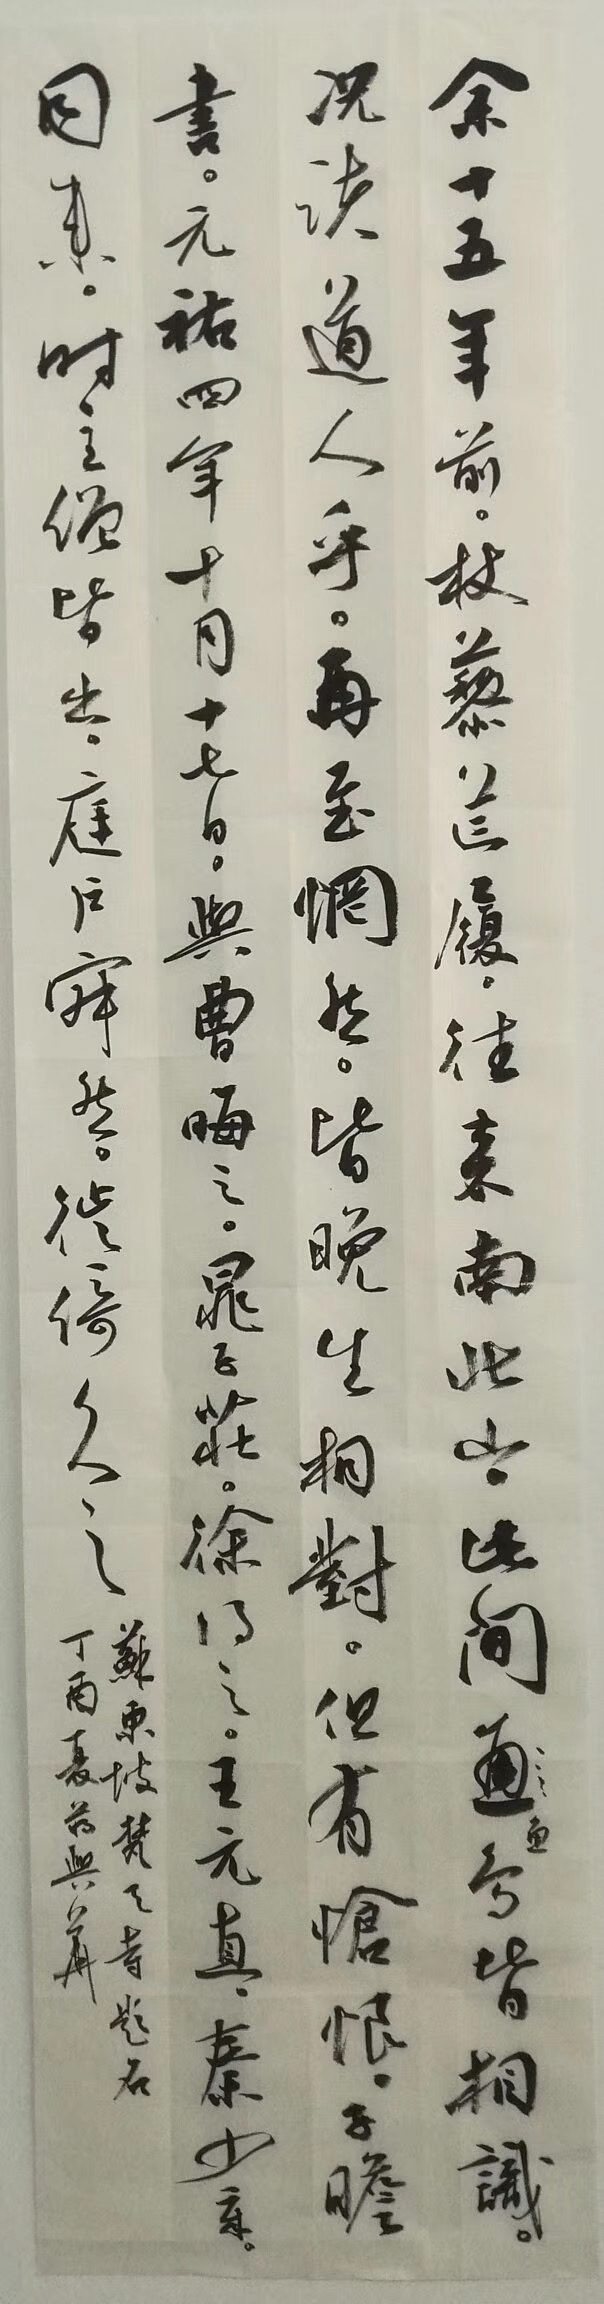 余十五年前。杖藜芒履。往來南北山。此間魚鳥皆相識。
況諸道人乎。再至惘然。皆晚生相對。但有愴恨。子瞻
書。元祐四年十月十七日。與曹晦之。晁子莊。徐得之。王元直。秦少章。
同來。時主僧皆出。庭戶寂然。徙倚久之
蘇東坡梵天寺題名
丁酉夏